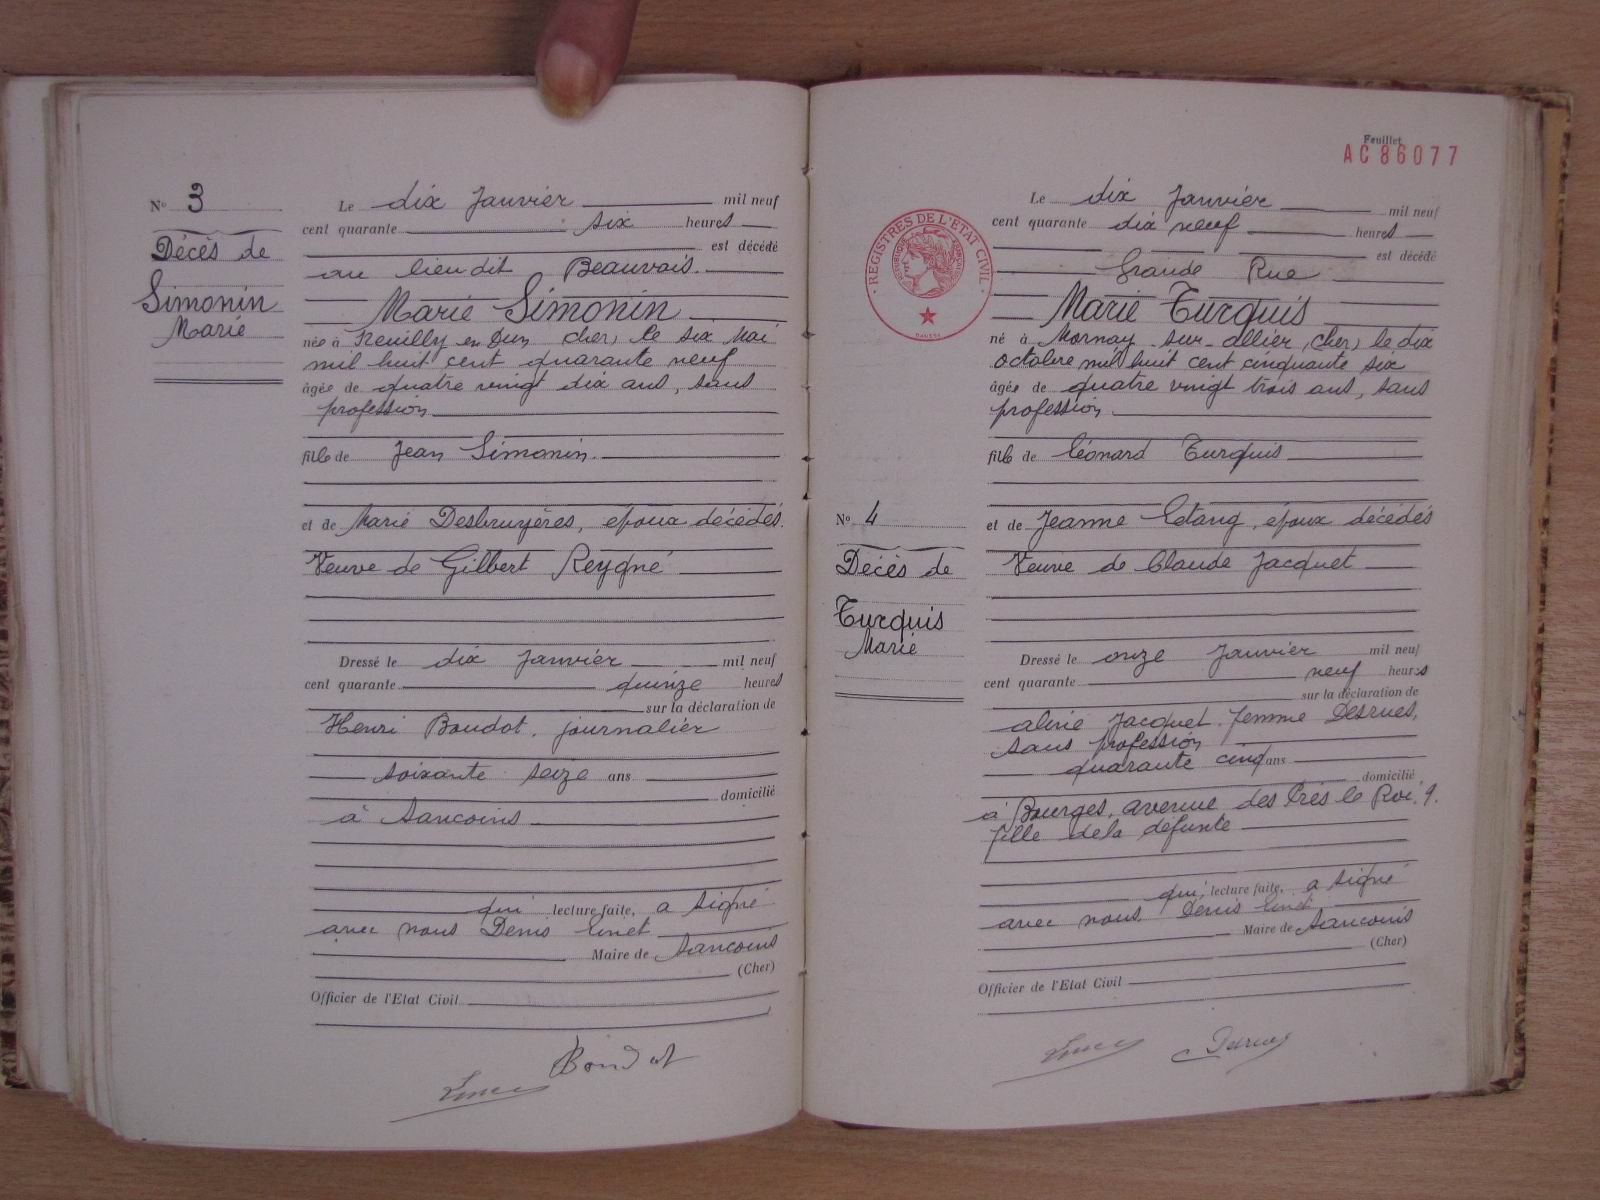 Nº 3
Décès de
Simonin
Marie
Le dix Janvier mil neuf
cent quarante six heures
est décédé
au lieu dit Beauvais.
Marie Simonin
née à Neuilly en Dun (cher) le six Mai
mil huit cent quarante neuf
âgée de quatre vingt dix ans, sans
profession
fille de Jean Simonin.
et de Marie Desbruyères, époux décédés.
Veuve de Gilbert Reygné
Dressé le dix Janvier mil neuf
cent quarante quinze heures
sur la déclaration de
Henri Boudot, journalier
soixante seize ans
domicilié
à Sancoins
qui, lecture faite, a signé
avec nous Denis Linet
Maire de Sancoins
(Cher)
Officier de l'Etat Civil
Boudot
Feuillet
AC 86077
REGISTRES DE L'ETAT CIVIL
Nº 4
Décès de
Turquis
Marie
Le dix Janvier mil neuf
cent quarante dix neuf heures
est décédé
Grande Rue
Marie Turquis
né à Mornay-sur-Allier (Cher) le dix
octobre mil huit cent cinquante six
âgée de quatre vingt trois ans, sans
profession.
fille de Léonard Turquis
et de Jeanne Letang, époux décédés
Veuve de Claude Jacquet
Dressé le onze Janvier mil neuf
cent quarante neuf heures
sur la déclaration de
aline Jacquet, femme Desrues,
sans profession
quarante cinq ans
domicilié
à Bourges, avenue des Prés le Roi, 9.
fille de la défunte
qui, lecture faite, a signé
avec nous Denis Linet
Maire de Sancoins
(Cher)
Officier de l'Etat Civil